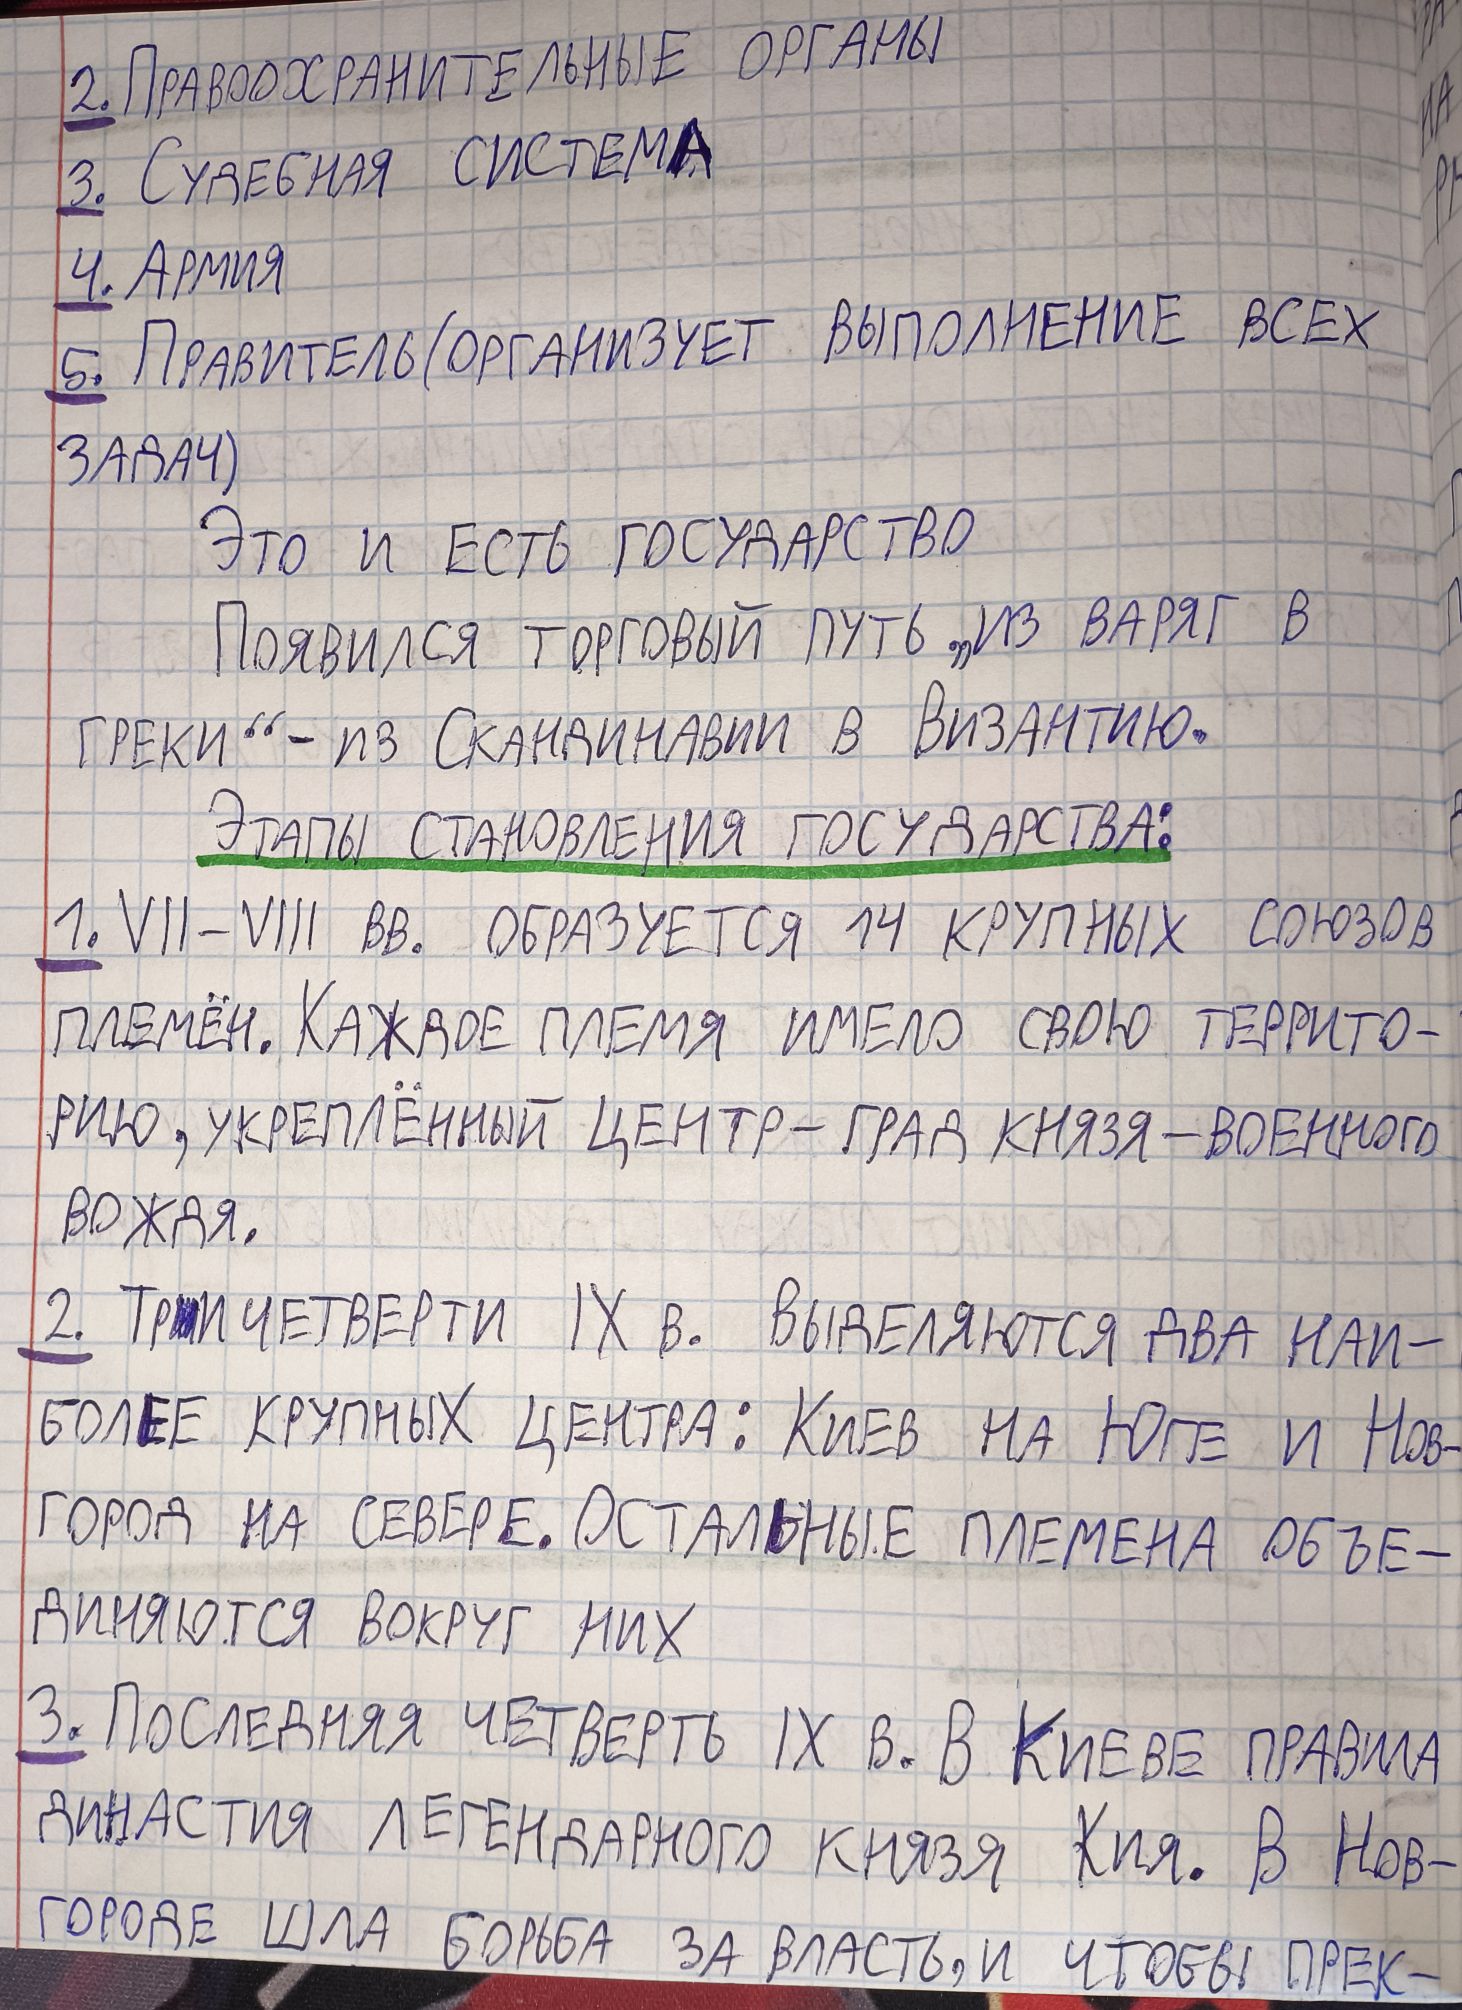 2. Правоохранительные органы
3. Судебная система
4. Армия
5. Правитель(организует выполнение всех
задач)
Это и есть государство
Появился торговый путь „из варяг в
греки“ - из Скандинавии в Византию.
Этапы становления государства:
1. VII-VIII вв. образуется 14 крупных союзов
племён. Каждое племя имело свою террито-
рию, укреплённый центр-град князя-военного
вождя.
2. Три четверти IX в. Выделяются два наи-
более крупных центра: Киев на юге и Нов-
город на севере. Остальные племена объе-
диняются вокруг них
3. Последняя четверть IX в. В Киеве правила
династия легендарного князя Кия. В Нов-
городе шла борьба за власть, и чтобы прек-